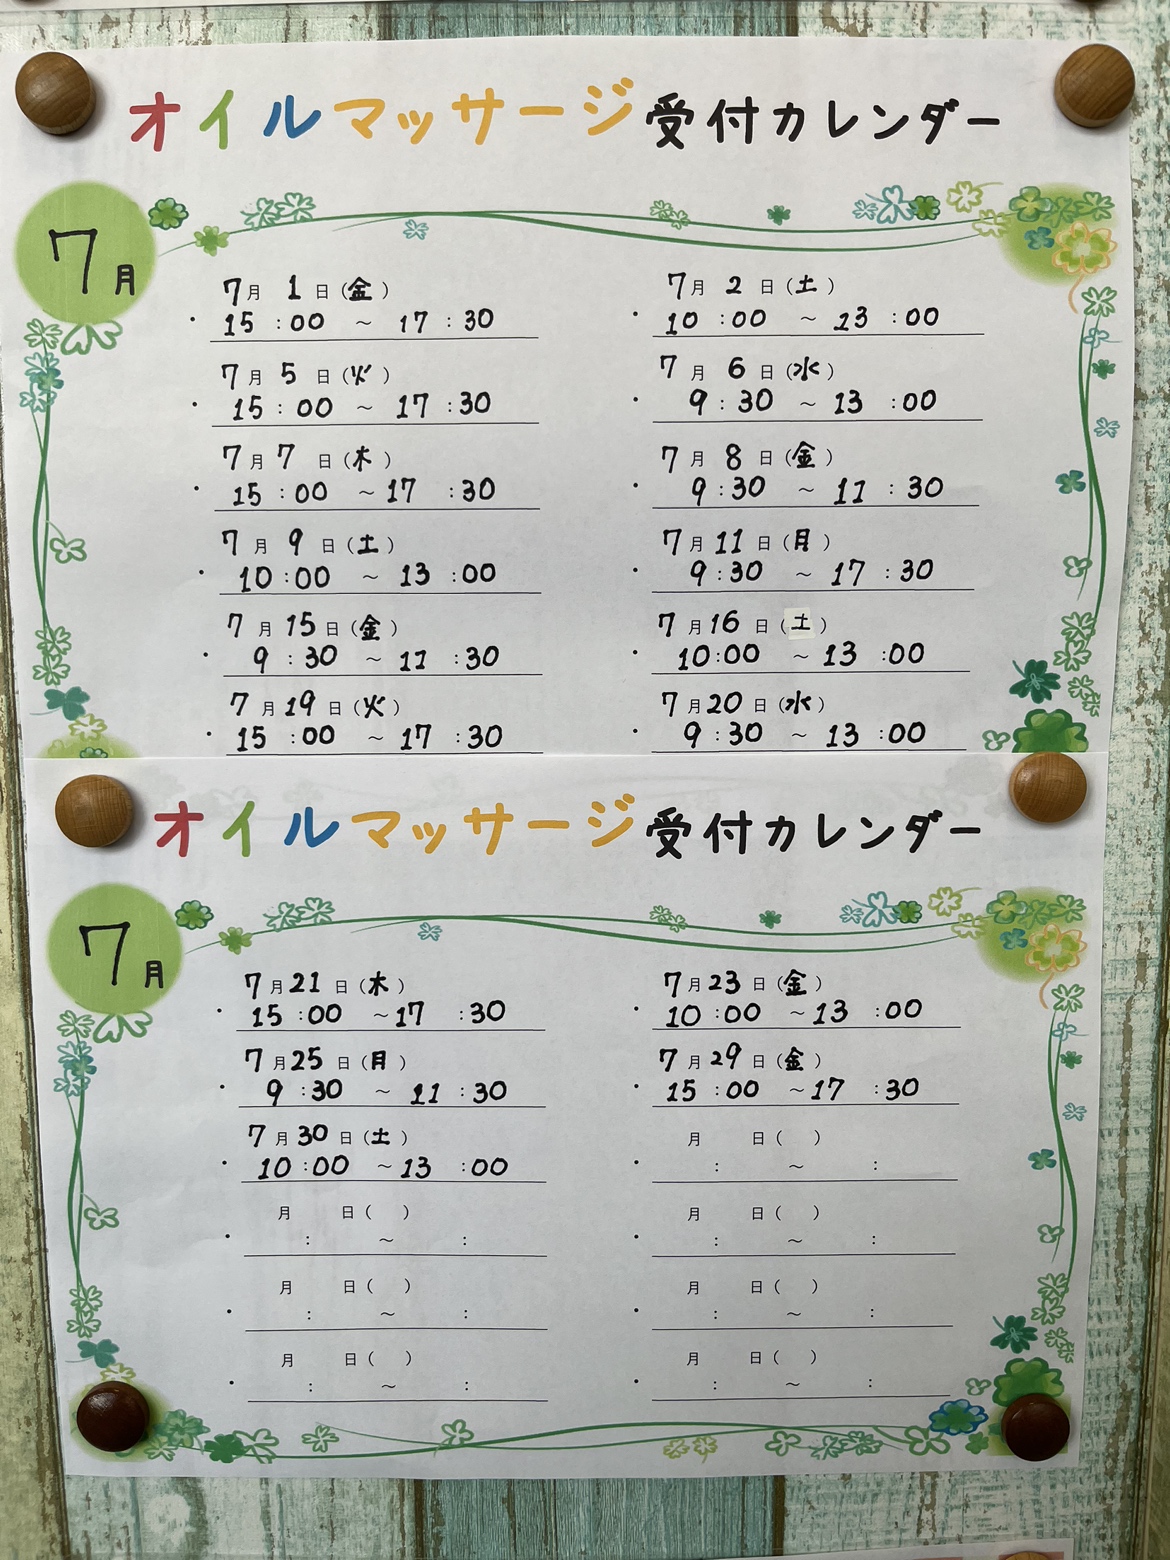 オイルマッサージ受付カレンダー
7月
7月 1日(金)
・15:00 ～ 17:30
7月 2日(土)
・10:00 ～ 13:00
7月 5日(火)
・15:00 ～ 17:30
7月 6日(水)
・9:30 ～ 13:00
7月 7日(木)
・15:00 ～ 17:30
7月 8日(金)
・9:30 ～ 11:30
7月 9日(土)
・10:00 ～ 13:00
7月 11日(月)
・9:30 ～ 17:30
7月 15日(金)
・9:30 ～ 11:30
7月 16日(土)
・10:00 ～ 13:00
7月 19日(火)
・15:00 ～ 17:30
7月 20日(水)
・9:30 ～ 13:00
オイルマッサージ受付カレンダー
7月
7月 21日(木)
・15:00 ～ 17:30
7月 23日(金)
・10:00 ～ 13:00
7月 25日(月)
・9:30 ～ 11:30
7月 29日(金)
・15:00 ～ 17:30
7月 30日(土)
・10:00 ～ 13:00
月 日( )
・ : ～ :
月 日( )
・ : ～ :
月 日( )
・ : ～ :
月 日( )
・ : ～ :
月 日( )
・ : ～ :
月 日( )
・ : ～ :
月 日( )
・ : ～ :